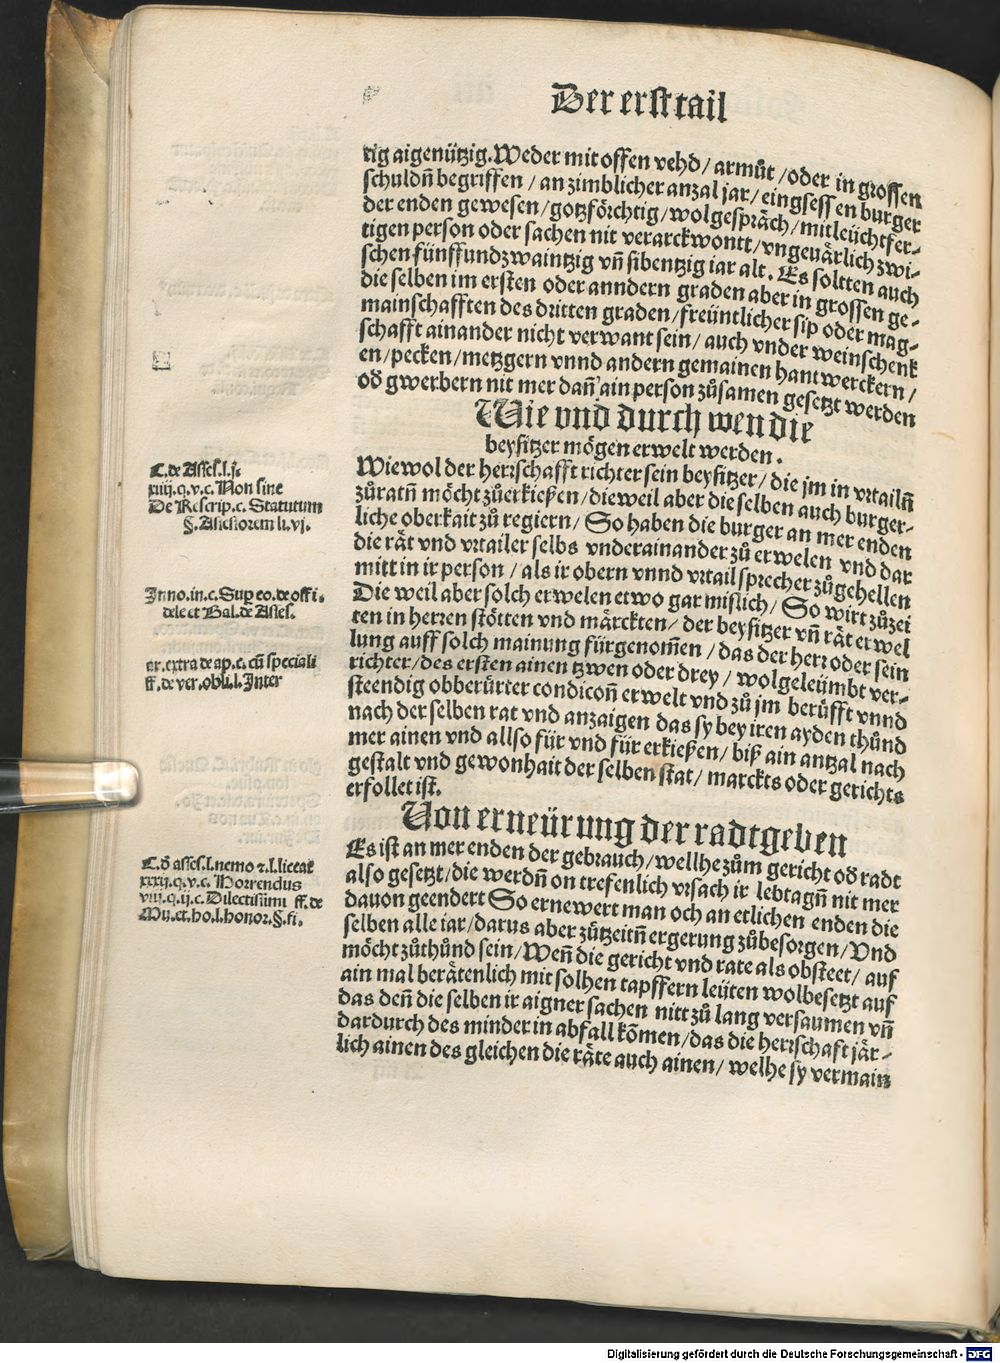 Der erst tail
rig aigenützig. Weder mit offen vehd / armůt / oder in grossen
schuldñ begriffen / an zimblicher anzal jar / eingsessen burger
der enden gewesen / gotzförchtig / wolgespräch / mitleüchtfer-
tigen person oder sachen nit verarckwontt / vngeuärlich zwi-
schen fünffundzwaintzig vñ sibentzig iar alt. Es soltten auch
die selben im ersten oder anndern graden aber in grossen ge-
mainschafften des dritten graden / freüntlicher sip oder mag-
schafft ainander nicht verwant sein / auch vnder weinschenk
en / pecken / metzgern vnnd andern gemainen hantwerckern /
od gwerbern nit mer dañ ain person zůsamen gesetzt werden
Wie vnd durch wen die
beysitzer mögen erwelt werden.
Wiewol der herrschafft richter sein beysitzer / die jm in vrtailñ
zůratñ möcht zůerkießen / dieweil aber die selben auch burger-
liche oberkait zů regiern / So haben die burger an mer enden
die rät vnd vrtailer selbs vnderainander zů erwelen vnd dar
mitt in ir person / als ir obern vnnd vrtail sprecher zůgehellen
Die weil aber solch erwelen etwo gar mislich / So wirt zůzei
ten in herren stötten vnd märckten / der beysitzer vñ rät erwel
lung auff solch mainung fürgenom̃en / das der herr oder sein
richter / des ersten ainen tzwen oder drey / wolgeleümbt ver-
steendig obberürter condicoñ erwelt vnd zů jm berůfft vnnd
nach der selben rat vnd anzaigen das sy bey iren ayden thůnd
mer ainen vnd allso für vnd für erkießen / biß ain antzal nach
gestalt vnd gewonhait der selben stat / marckts oder gerichts
erfollet ist.
Von erneürung der radtgeben
Es ist an mer enden der gebrauch / wellhe zům gericht od radt
also gesetzt / die werdñ on trefenlich vrsach ir lebtagñ nit mer
dauon geendert So ernewert man och an etlichen enden die
selben alle iar / darus aber zůtzeitñ ergerung zůbesorgen / Vnd
möcht zůthůnd sein / Weñ die gericht vnd rate als obsteet / auf
ain mal berätenlich mit solhen tapffern leüten wolbesetzt auf
das deñ die selben ir aigner sachen nitt zů lang versaumen vñ
dardurch des minder in abfall kõmen / das die herrschaft jär-
lich ainen des gleichen die räte auch ainen / welhe sy vermainz
C. de Asses. l. j.
xiiij. q. v. c. Non sine
De Rescrip. c. Statutum
§. Assessorem li. vj.
Inno. in. c. Sup eo. de offi.
dele et Bal. de Asses.
ar. extra de ap. c. cũ speciali
ff. de ver. obli. l. Inter
C. d asses. l. nemo z. l. liceat
xxxij. q. v. c. Horrendus
viij. q. ij. c. Dilectissimi ff. de
Mu. et. ho. l. honor. §. fi.
Digitalisierung gefördert durch die Deutsche Forschungsgemeinschaft - DFG